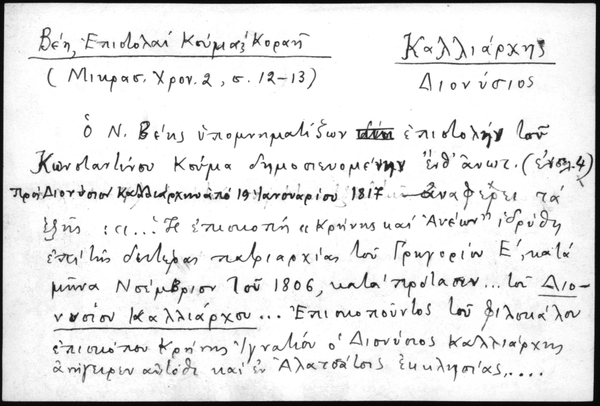 Βέη, Ἐπιστολαὶ Κούμα, Κοραῆ
Καλλιάρχης
(Μικρασ. Χρον. 2, σ. 12-13)
Διονύσιος
Ὁ Ν. Βέης ὑπομνηματίζων ἐπιστολὴν τοῦ
Κωνσταντίνου Κούμα δημοσιευομένην ἐνθ' ἀνωτ. (ἐν σελ. 4)
πρὸς Διονύσιον Καλλιάρχην ἀπὸ 19 Ἰανουαρίου 1817 ἀναφέρει τὰ
ἑξῆς: «... Ἡ ἐπισκοπὴ «Κρήνης καὶ Ἀνέων» ἱδρύθη
ἐπὶ τῆς δευτέρας πατριαρχίας τοῦ Γρηγορίου Ε', κατὰ
μῆνα Νοέμβριον τοῦ 1806, κατὰ πρότασιν... τοῦ Διο-
νυσίου Καλλιάρχου... Ἐπισκοποῦντος τοῦ φιλοκάλου
ἐπισκόπου Κρήνης Ἰγνατίου ὁ Διονύσιος Καλλιάρχης
ἀνήγειρεν αὐτόθι καὶ ἐν Ἀλατσάτοις ἐκκλησίας, ....